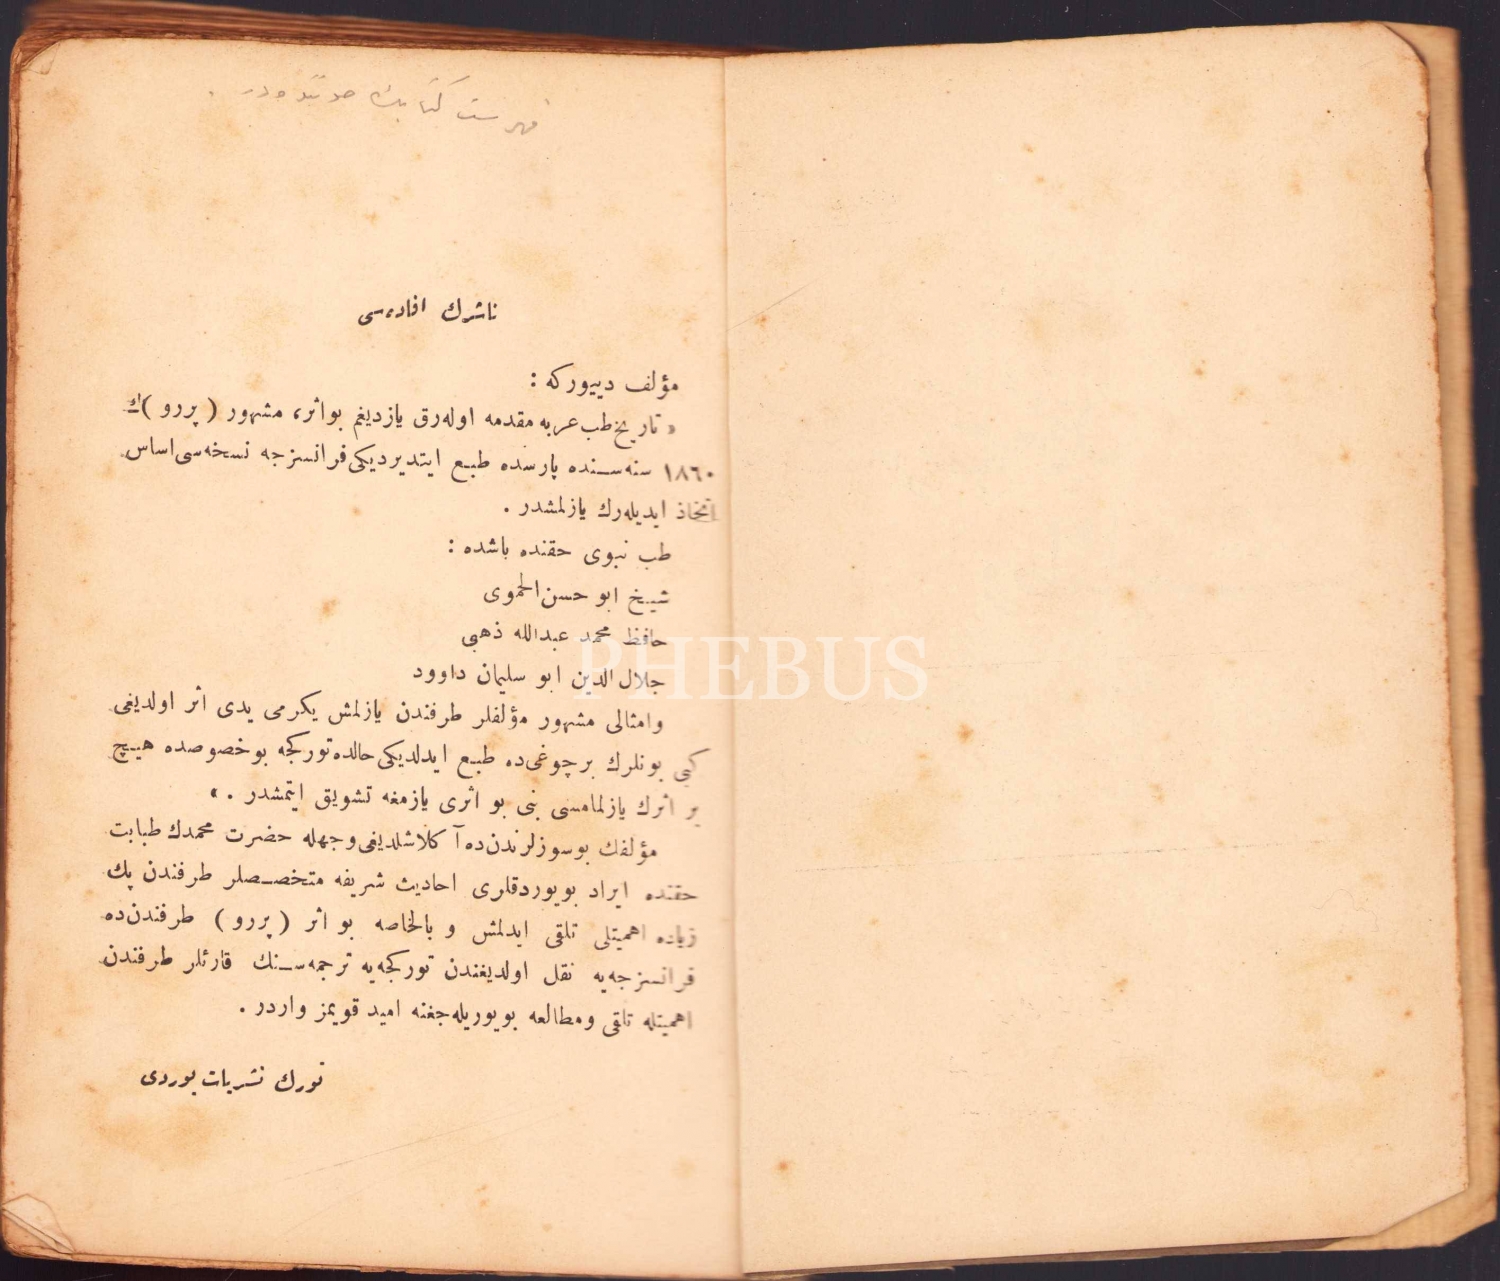 فهرست كتابك صوننده‌در .
ناشرك افاده‌سی
مؤلف دییورکه :
« تاریخ طب عربه مقدمه اوله‌رق یازدیغم بو اثر، مشهور ( پررو )ك
١٨٦٠ سنه‌سنده پارسده طبع ایتدیردیکی فرانسزجه نسخه‌سی اساس
اتخاذ ایدیله‌رك یازلمشدر .
طب نبوی حقنده باشده :
شیخ ابو حسن الحموی
حافظ محمد عبدالله ذهبی
جلال الدین ابو سلیمان داوود
وامثالی مشهور مؤلفلر طرفندن یازلمش یکرمی یدی اثر اولدیغی
کبی بونلرك برچوغی‌ده طبع ایدلدیکی حالده تورکجه بو خصوصده هیچ
بر اثرك یازلمامسی بنی بو اثری یازمغه تشویق ایتمشدر . »
مؤلفك بوسوزلرندن‌ده آکلاشلدیغی وجهله حضرت محمدك طبابت
حقنده ایراد بویوردقلری احادیث شریفه متخصصلر طرفندن پك
زیاده اهمیتلی تلقی ایدلمش و بالخاصه بو اثر ( پررو ) طرفندن‌ده
فرانسزجه‌یه نقل اولدیغندن تورکجه‌یه ترجمه‌سنك قارئلر طرفندن
اهمیتله تلقی ومطالعه بویوریله‌جغنه امید قویمز واردر .
تورك نشریات یوردی
PHEBUS